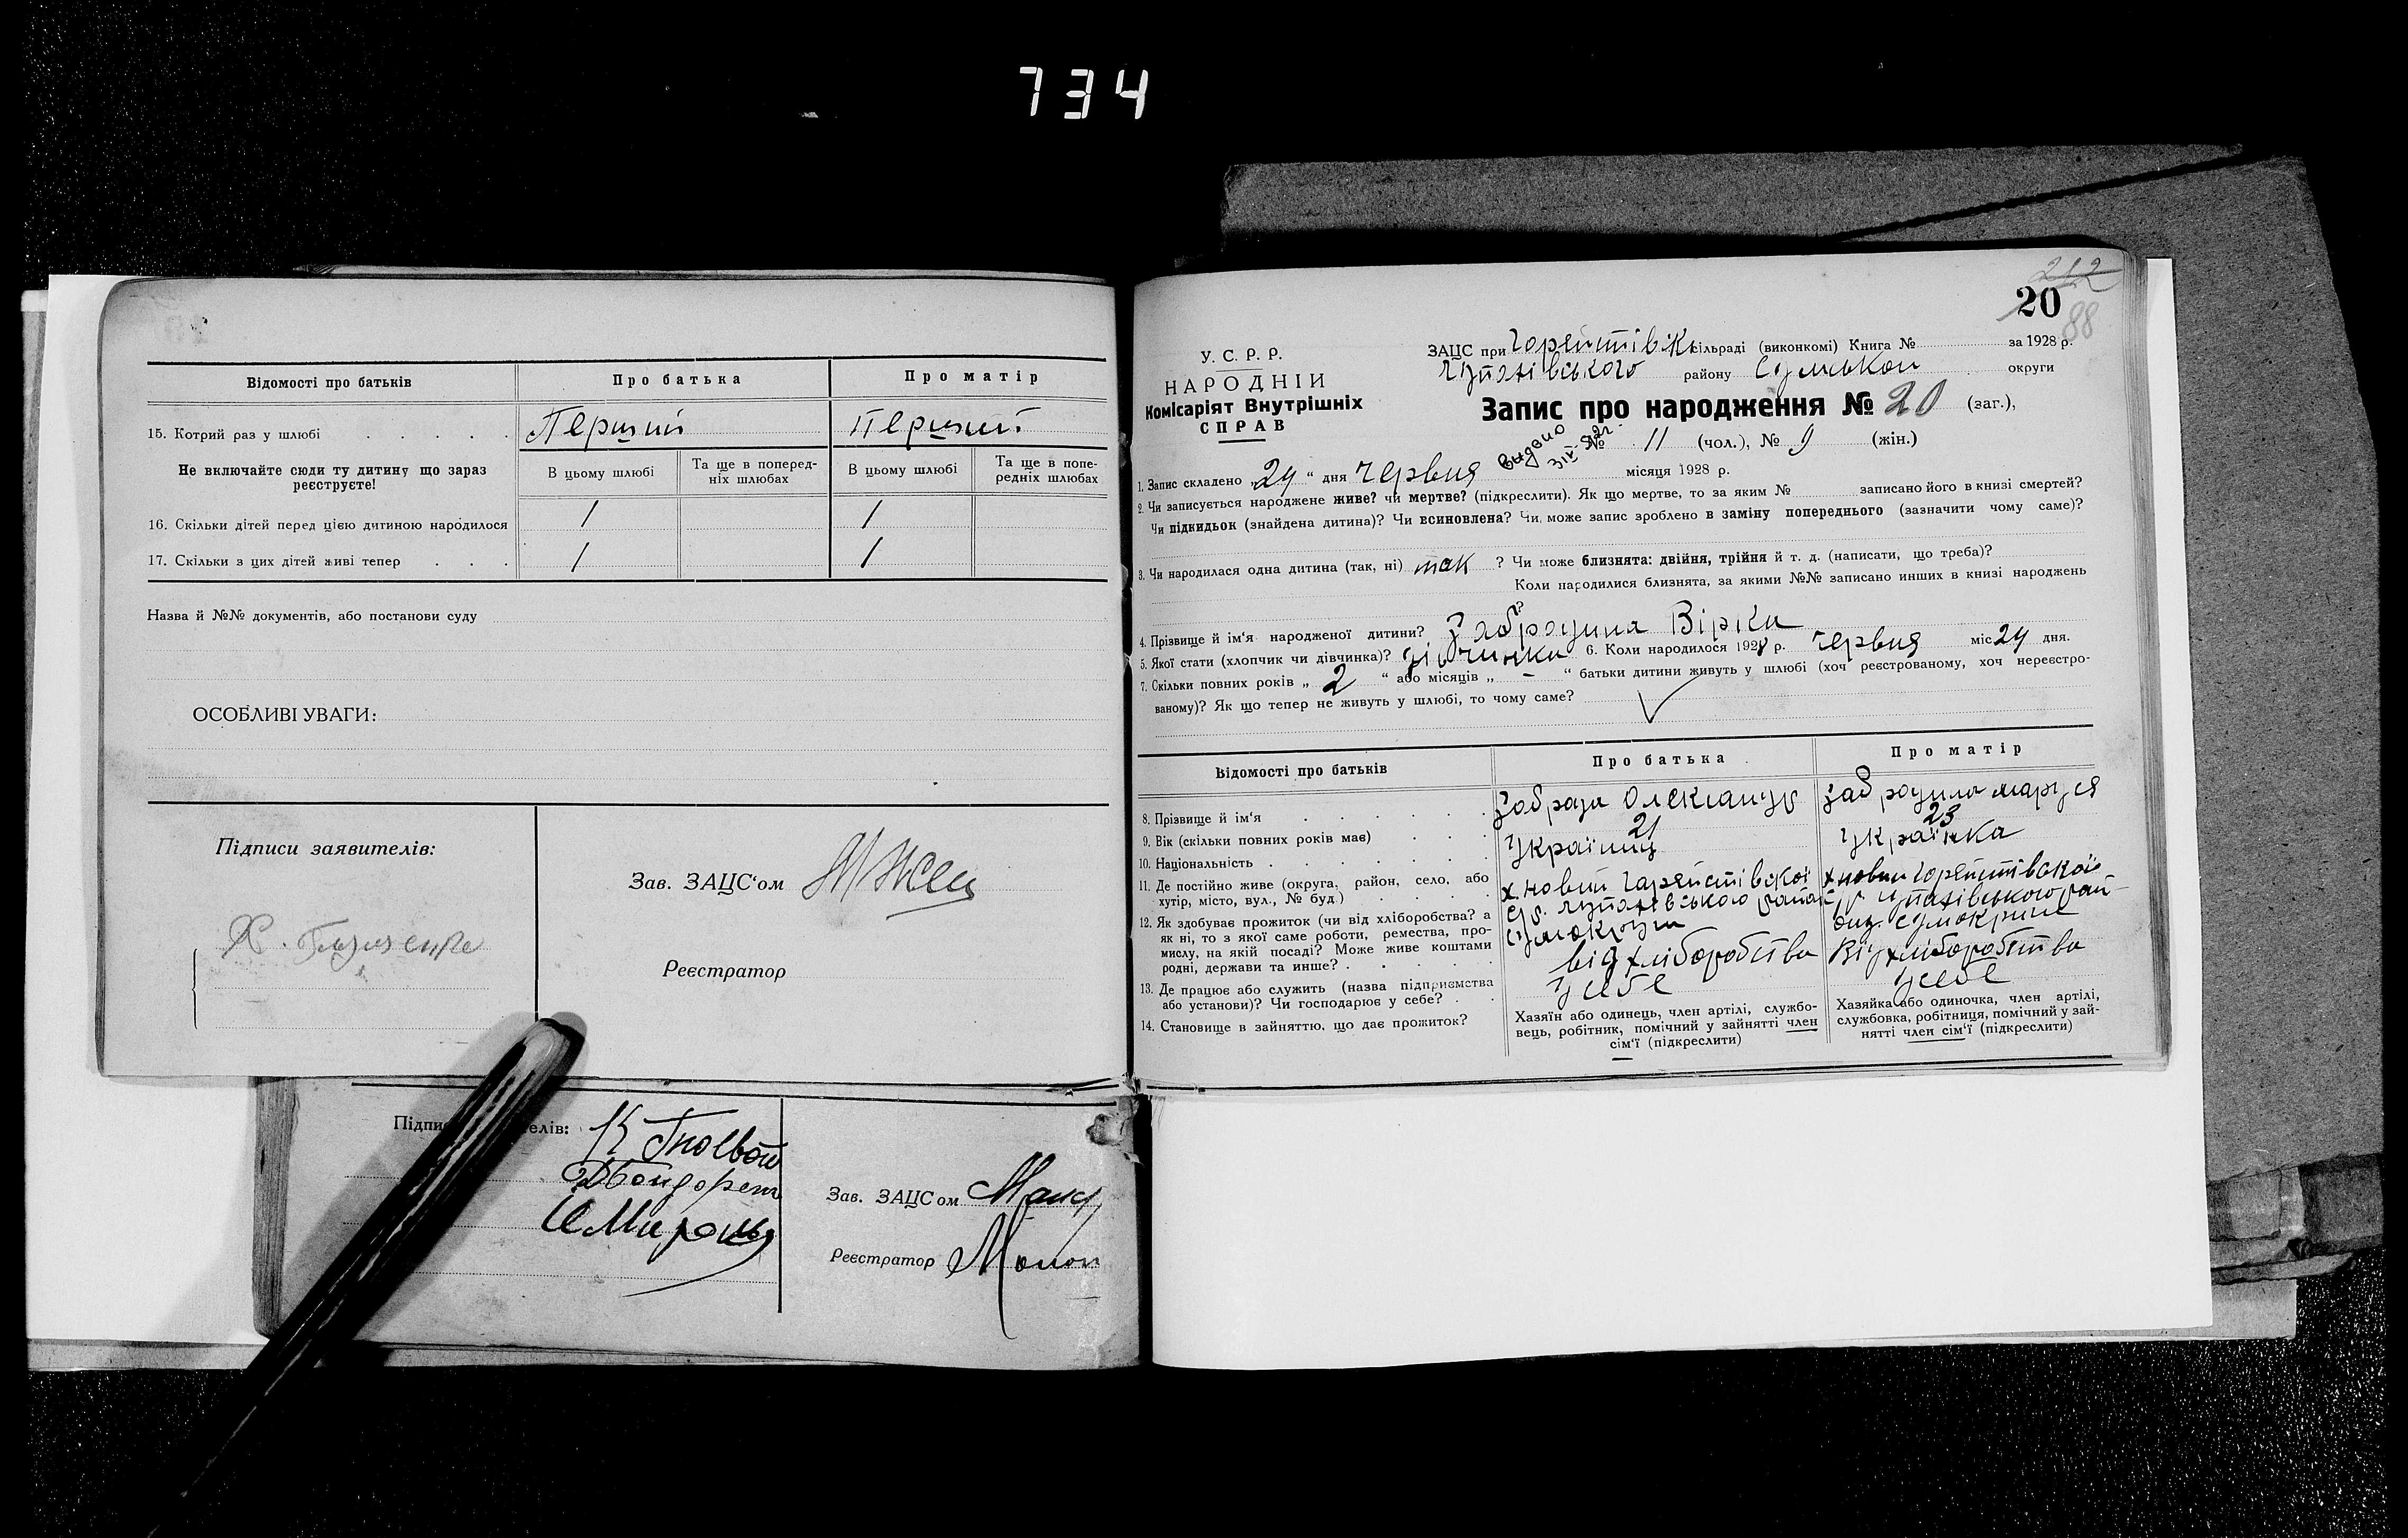 734
Відомості про батьків
Про батька
Про матір
15. Котрий раз у шлюбі
Перший
Перший
Не включайте сюди ту дитину що зараз реєструєте!
В цьому шлюбі
Та ще в попередніх шлюбах
В цьому шлюбі
Та ще в попередніх шлюбах
16. Скільки дітей перед цією дитиною народилося
1
1
17. Скільки з цих дітей живі тепер
1
1
Назва й №№ документів, або постанови суду
ОСОБЛИВІ УВАГИ:
Підписи заявителів:
Зав. ЗАЦС'ом
Реєстратор
елів:
Зав. ЗАЦСом
Реєстратор
212
20
88
У. С. Р. Р.
НАРОДНІЙ
Комісаріят Внутрішніх
СПРАВ
ЗАЦС при сільраді (виконкомі) Книга № за 1928 р.
району Сумської округи
Запис про народження № 20 (заг.),
№ 11 (чол.), № 9 (жін.)
1. Запис складено „24“ дня червня місяця 1928 р.
2. Чи записується народжене живе? чи мертве? (підкреслити). Як що мертве, то за яким № записано його в книзі смертей?
Чи підкидьок (знайдена дитина)? Чи всиновлена? Чи може запис зроблено в заміну попереднього (зазначити чому саме)?
3. Чи народилася одна дитина (так, ні) так ? Чи може близнята: двійня, трійня й т. д. (написати, що треба)?
Коли народилися близнята, за якими №№ записано инших в книзі народжень
?
4. Прізвище й ім'я народженої дитини? Забродина Вірка
5. Якої стати (хлопчик чи дівчинка)? дівчинка 6. Коли народилося 1928 р. червня міс 24 дня.
7. Скільки повних років „ 2 “ або місяців „ – “ батьки дитини живуть у шлюбі (хоч реєстрованому, хоч нереєстро-
ваному)? Як що тепер не живуть у шлюбі, то чому саме?
Відомості про батьків
Про батька
Про матір
8. Прізвище й ім'я
Олександр
Маруся
9. Вік (скільки повних років має)
21
23
10. Національність
Українец
Українка
11. Де постійно живе (округа, район, село, або
хутір, місто, вул., № буд.)
х. новий
х новий
12. Як здобуває прожиток (чи від хліборобства? а
як ні, то з якої саме роботи, ремества, про-
мислу, на якій посаді? Може живе коштами
родні, держави та инше?
від хліборобства
Від хліборобства
13. Де працює або служить (назва підприємства
або установи)? Чи господарює у себе?
у себе
у себе
14. Становище в зайняттю, що дає прожиток?
Хазяїн або одинець, член артілі, службо-
вець, робітник, помічний у зайнятті член
сім'ї (підкреслити)
Хазяйка або одиночка, член артілі,
службовка, робітниця, помічний у зай-
нятті член сім'ї (підкреслити)